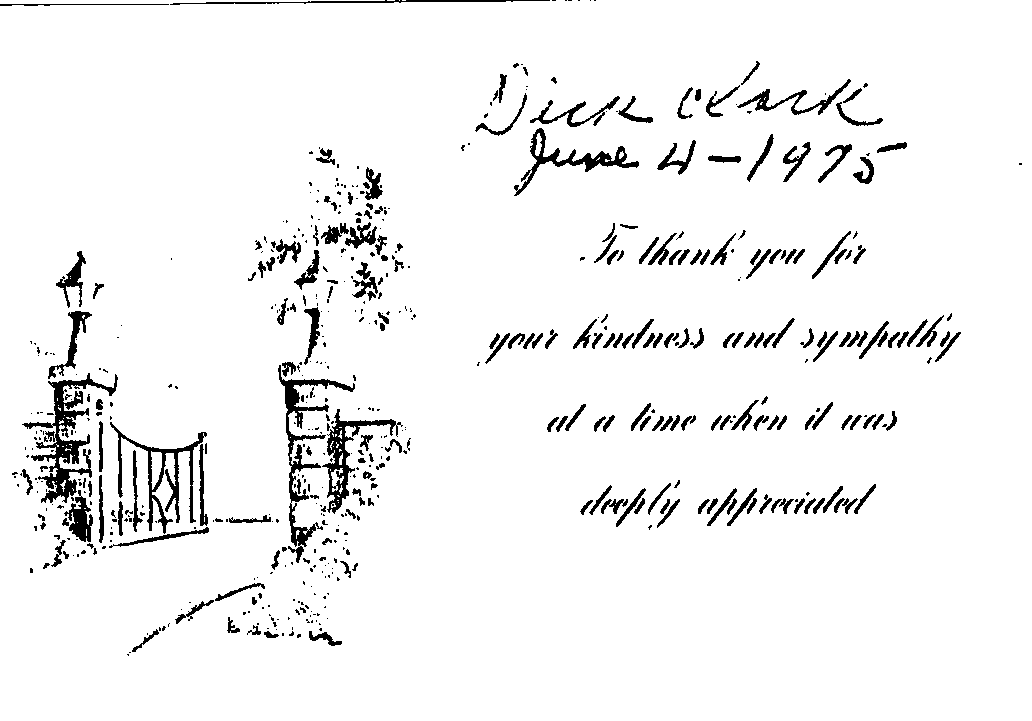 Dick Clark
June 4-1975
To thank you for
your kindness and sympathy
at a time when it was
deeply appreciated